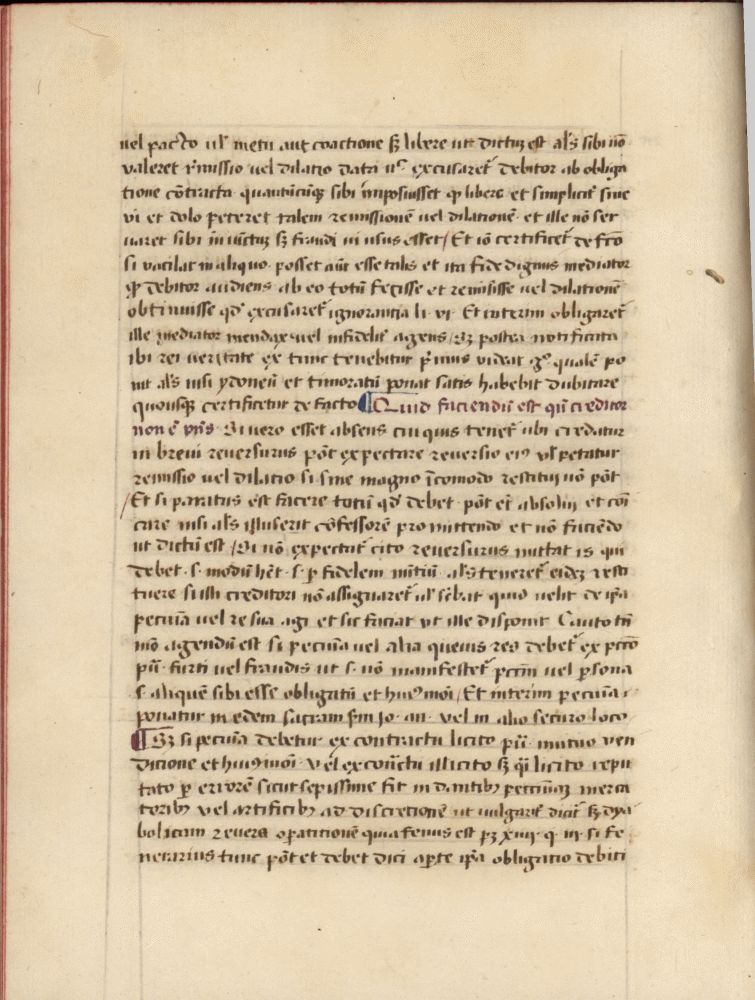 vel pacto vel metu aut coactione sed libere ut dictum est als sibi nō
valeret remissio vel dilatio data nec excusaret debitor ab obliga
tione cōtracta quantūcūque sibi īmposuisset quod libere et simplicit sine
vi et dolo peteret talem remissionē vel dilationē et ille nō ser
varet sibi sed fraudi usus esset / Et iō certificet de fcō
si vacilat in aliquo posset aut esse talis et ita fide dignus mediator
quod debitor audiens ab eo totū fecisse et remisisse vel dilationē
obtinuisse qd excusaret ignorantia Et interim obligaret
ille mediator mendax vel infidelit agens / Sed postea notificata
ibi rei veritate ex tunc tenebitur primus videat quale po
nit als nisi ydoneū et timoratū ponat satis habebit dubitare
quousque certificetur de facto ¶ Quid faciendū est qn creditor
non ē pns Si vero esset absens cui quis tenet ubi credatur
in brevi reversurus pōt expectare reversio eius vel petatur
remissio vel dilatio si sine magno īcomodo restitui nō pōt
/ Et si paratus est facere totū qd debet pōt et absolvi et cōi
care nisi als illuserit cōfessorē promittendo et nō faciēdo
ut dictū est / Si nō expectat cito reversurus mittat is qui
debet s. modū hēt s. p fidelem nūtiū als teneret eidem resti
tuere si isti creditori nō assignaret vel sēbat quō velit de ipa
pecunia vel re sua agi et sic faciat ut ille disponit Caute tn
mō agendū est si pecunia vel alia quevis res debet ex pctō
pū furti vel fraudis ut s. nō manifestet pctm vel psona
s. aliquē sibi esse obligatū et huiusmōi / Et interim pecunia
ponatur in edem sacram vel in alio securo loco
¶ Sed si pecunia debetur ex contractu licito pū mutuo ven
dicione et huiusmōi Vel ex cōtractu illicito sed qi licito repu
tato p errorē sicut sepissime fit in dantibus pecuniam merca
toribus vel artificibus ad discretionē ut vulgarit dicit sed dya
bolicam revera optationē quia fenus est xiiii q iii si fe
nerarius tunc pōt et debet dici apte ipa obligatio debiti